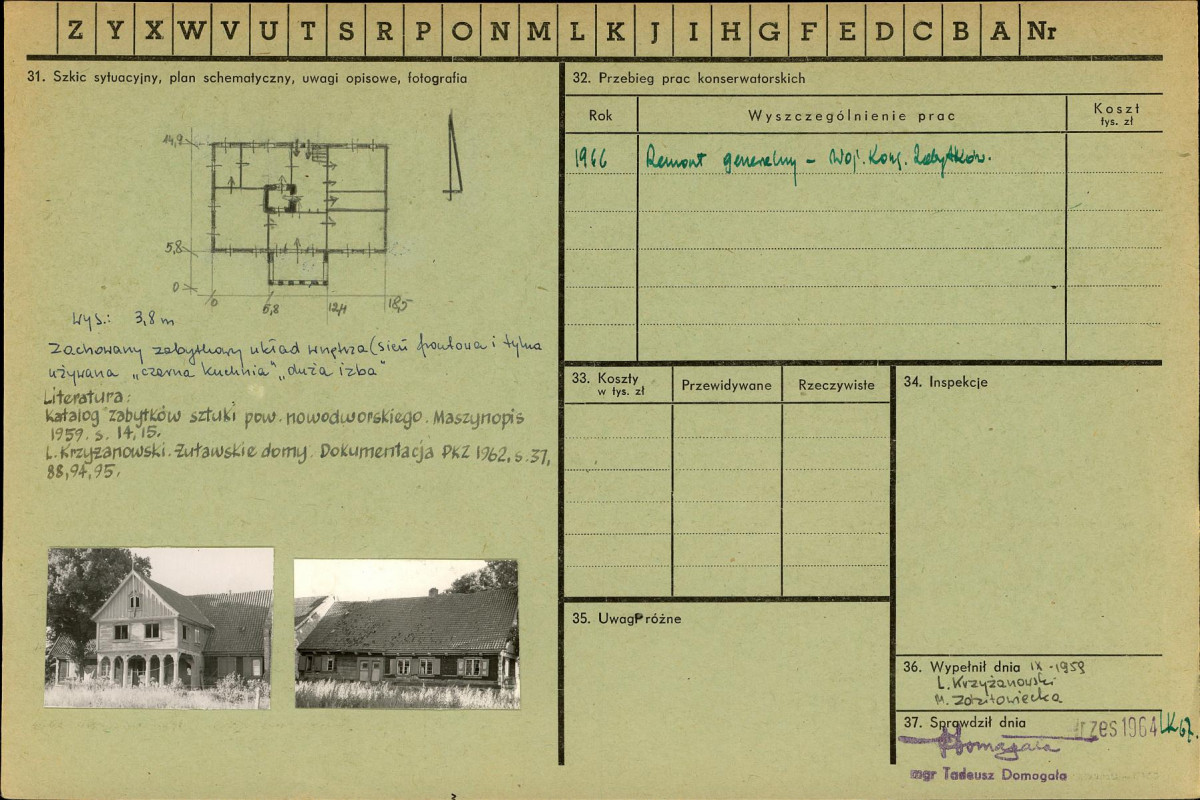 Z Y X W V U T S R P O N M L K J I H G F E D C B A Nr
31. Szkic sytuacyjny, plan schematyczny, uwagi opisowe, fotografia
14,9
5,8
0
0 6,8 12,4 18,5
wys.: 3,8 m
Zachowany zabytkowy układ wnętrza (sień frontowa i tylna
używana „czarna kuchnia" „duża izba"
Literatura:
Katalog zabytków sztuki pow. nowodworskiego. Maszynopis
1959. s. 14, 15.
L. Krzyżanowski. Żuławskie domy. Dokumentacja PKZ 1962, s. 37,
88, 94, 95.
32. Przebieg prac konserwatorskich
Rok Wyszczególnienie prac Koszt
tys. zł
1966 Remont generalny – Woj. Kons. Zabytków.
33. Koszty
w tys. zł
Przewidywane Rzeczywiste
34. Inspekcje
35. Uwagi różne
36. Wypełnił dnia IX - 1959
L. Krzyżanowski
37. Sprawdził dnia
1964 LK 67.
Domagała
mgr Tadeusz Domagała